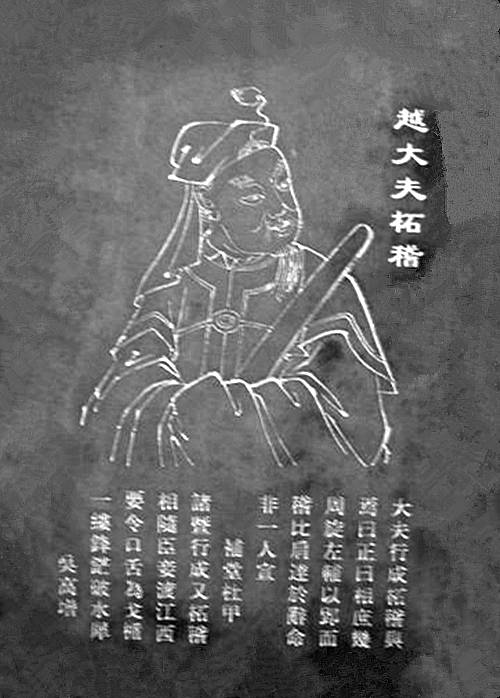 越大夫柘稽
大夫行成柘稽與
焉曰正曰相庶幾
周旋左輔以
稽比肩達於辭命
非一人宣
補堂杜甲
諸暨行成又柘稽
相隨臣妾渡江西
要令口舌為戈楯
一鋒鋩水犀
吳高增